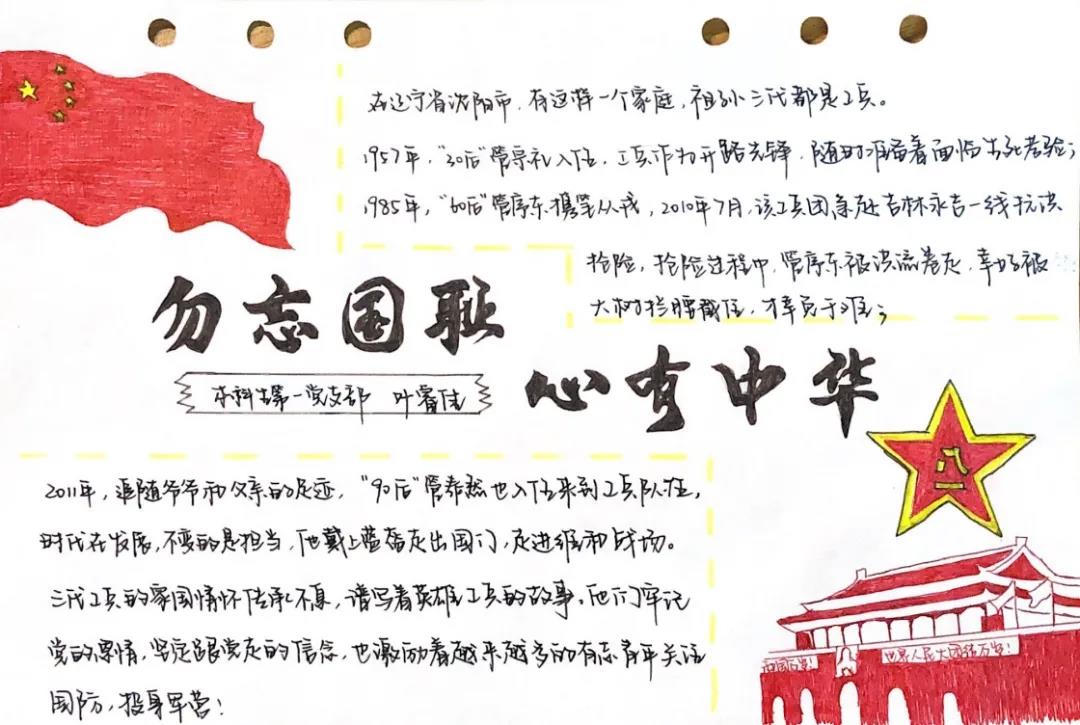 在辽宁省沈阳市，有这样一个家庭，祖孙三代都是工兵。
1957年，“30后”管序礼入伍，工兵作为开路先锋，随时准备着面临生死考验；
1985年，“60后”管序东携笔从戎，2010年7月，该工兵团急赴吉林永吉一线抗洪
抢险，抢险过程中，管序东被洪流卷走，幸好被
大树拦腰截住，才幸免于难；
勿忘国耻
心有中华
本科生第一党支部 叶睿佳
2011年，追随爷爷和父亲的足迹，“90后”管泰然也入伍来到工兵队伍，
时代在发展，不变的是担当，他戴上蓝盔走出国门，走进维和战场。
三代工兵的家国情怀传承不息，谱写着英雄工兵的故事。他们牢记
党的恩情，坚定跟党走的信念，也激励着越来越多的有志青年关注
国防，投身军营！
八一
世界人民大团结万岁！